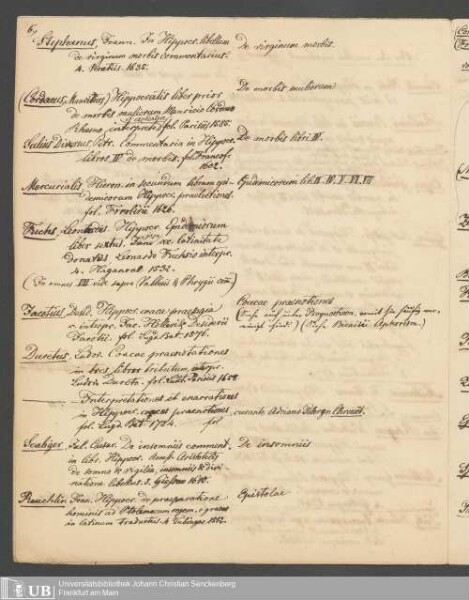 6.
Stephanus, Joann. In Hippocr. libellum De virginum morbis.
de virginum morbis commentarius.
4. Venetiis. 1635.
De morbis mulierum
(Cordaeus, Mauritius) Hippocratis liber prior
de morbis mulierum Mauricio Cordaeo
Rhemo interprete & explicatore fol. Parisiis 1585.
Salius Diversus, Petr. Commentaria in Hippocr. De morbis libri IV.
libros IV de morbis, fol. Francof.
1602.
Mercurialis, Hieron. in secundum librum epi- Epidemicorum lib. II. IV. V. VI. VII
demicorum Hippocr. praelectiones.
fol. Forolivii 1626.
Fuchs, Leonhard. Hippocr. Epidemiorum
liber sextus. Jam rec. latinitate
donatus, Leonardo Fuchsio interpr.
4. Haganoae 1532.
(In omnes VII vide supra Vallesii & Phrygii com)
Jacotius, Desid. Hippocr. coaca praesagia Coacae praenotiones
c. interpr. Jac. Hollerii & Desiderii
Jacotii. fol. Lugd. Bat. 1576.
Duretus, Ludov. Coacae praenotationes
in tres libros tributum, interpr.
Ludov. Dureto. fol. Lutet. Parisiis 1658
—— Interpretationes et enarrationes
in Hippocr. coacas praenotiones, curante Adriano Peleryn Chrouet.
fol. Lugd. Bat. 1784. fol
Scaliger, Jul. Caesar. De insomniis comment. De insomniis
in libr. Hippocr. Aristotelis
de somno & vigilia, insomniis & divi-
natione libellus. 8. Giessae 1610.
Reuchlin, Joan. Hippocr. de praeparatione Epistolae
hominis ad Ptolemaeum regem, e graeco
in latinum traductus. 4. Tubingae 1512.
UB Universitätsbibliothek Johann Christian Senckenberg
Frankfurt am Main